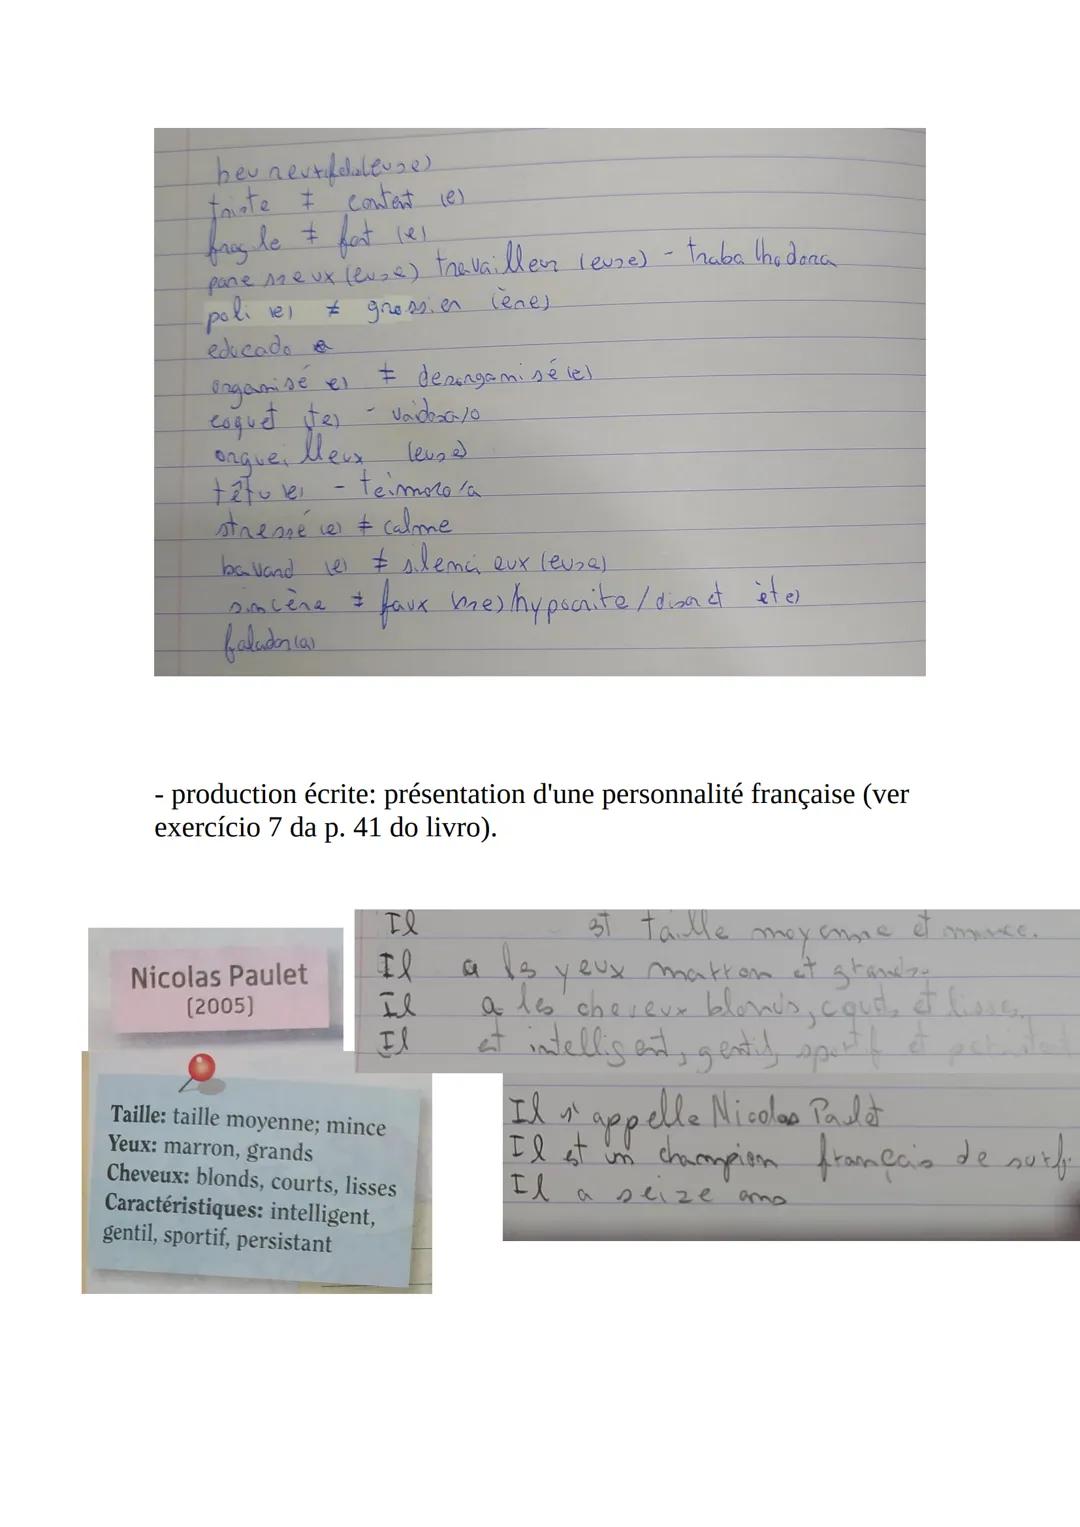 heureux (euse)
triste ≠ content (e)
fragile ≠ fort (e)
paresseux (euse) travailleur (euse) - trabalhadora
poli (e) ≠ grossier (ère)
educado
organisé (e) ≠ desorganisé (e)
coquet (te) - vaidosa/o
orgueilleux (euse)
têtu (e) - teimoso/a
stressé (e) ≠ calme
bavard (e) ≠ silencieux (euse)
sincère ≠ faux hypocrite / discret ète)
falador(a)
- production écrite: présentation d'une personnalité française (ver
exercício 7 da p. 41 do livro).
Nicolas Paulet
(2005)
Taille: taille moyenne; mince
Yeux: marron, grands
Cheveux: blonds, courts, lisses
Caractéristiques: intelligent,
gentil, sportif, persistant
Il est taille moyenne et mince.
Il a les yeux marron et grands.
Il a les cheveux blonds, et lisses.
Il est intelligent, gentil, sportif et
Il s'appelle Nicolas Paulet
Il est un champion français de surf.
Il a seize ans